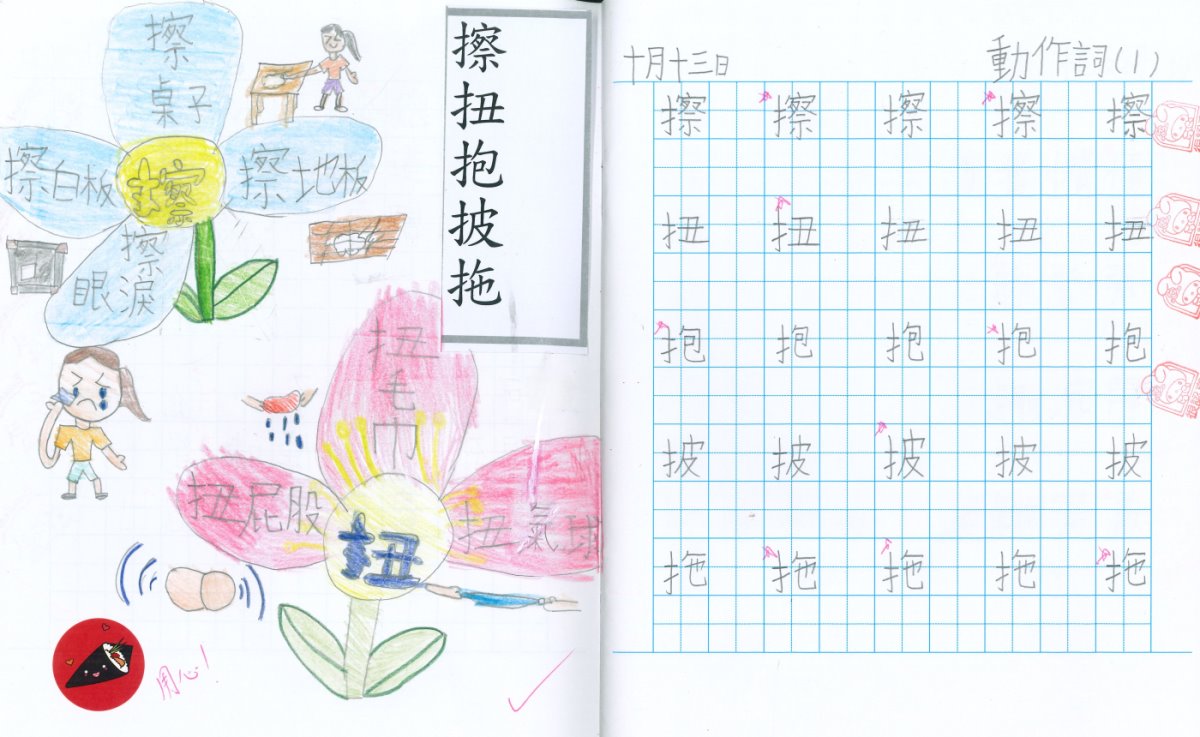 擦
桌子
擦白板
擦
擦地板
擦
眼淚
擦
扭
抱
披
拖
扭
毛
巾
扭屁股
扭
扭氣球
用心!
十月十三日
動作詞(1)
擦 擦 擦 擦 擦
扭 扭 扭 扭 扭
抱 抱 抱 抱 抱
披 披 披 披 披
拖 拖 拖 拖 拖